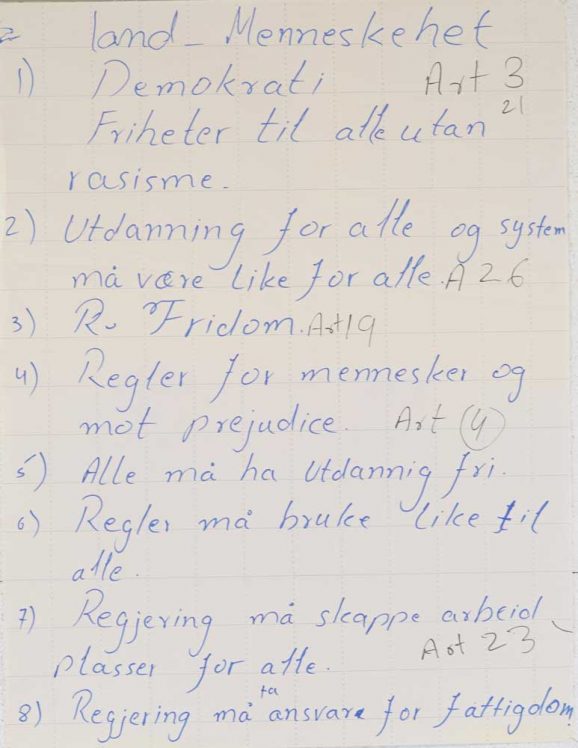 land - Menneskehet
1) Demokrati Art 3
21
Friheter til alle utan
rasisme.
2) Utdanning for alle og system
må være like for alle. A 26
3) R. Fridom. Art 19
4) Regler for mennesker og
mot prejudice. Art (4)
5) Alle må ha utdannig fri.
6) Regler må bruke like til
alle.
7) Regjering må skappe arbeid
plasser for alle. Art 23
8) Regjering må ta ansvare for fattigdom